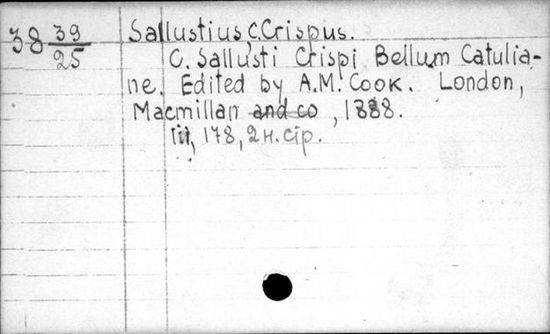 38 39/25 Sallustius, C. Crispus.
C. Sallusti Crispi Bellum Catulia-
ne. Edited by A.M. Cook. London,
Macmillan and co, 1888.
178, 2 н. стр.